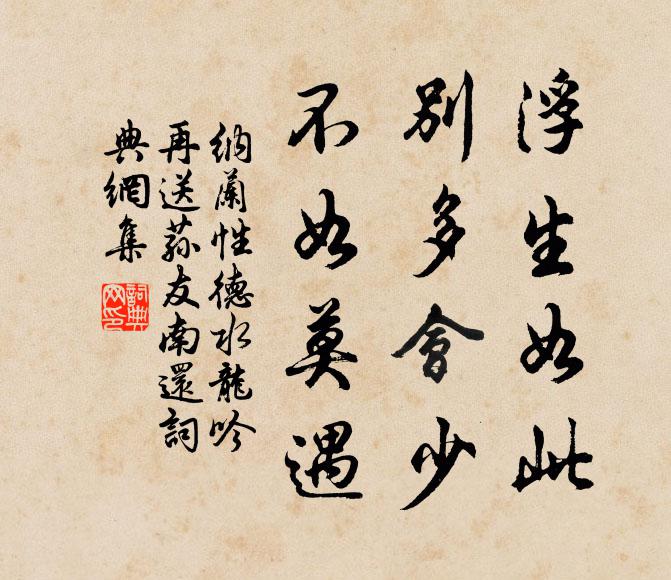 浮生如此
別多會少
不如莫遇
納蘭性德水龍吟
再送蓀友南還詞
典網集
詞典
网印